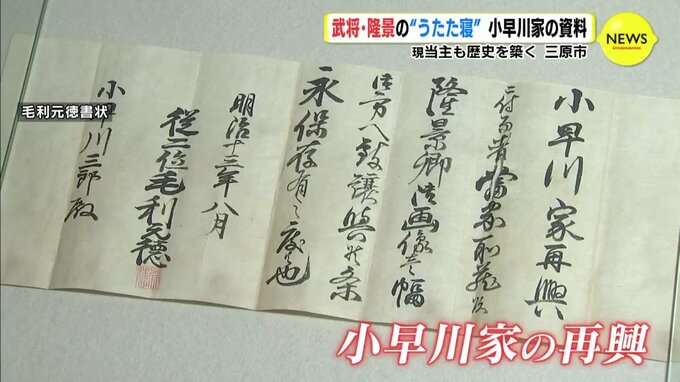 武将・隆景の“うたた寝” 小早川家の資料
現当主も歴史を築く 三原市
NEWS
毛利元徳書状
小早川家再興
ニ付而者当家所蔵
隆景卿御画像壱幅
貴方へ致譲与候条
永保存有之度候也
明治十三年八月
従二位毛利元徳
小早川三郎殿
小早川家の再興